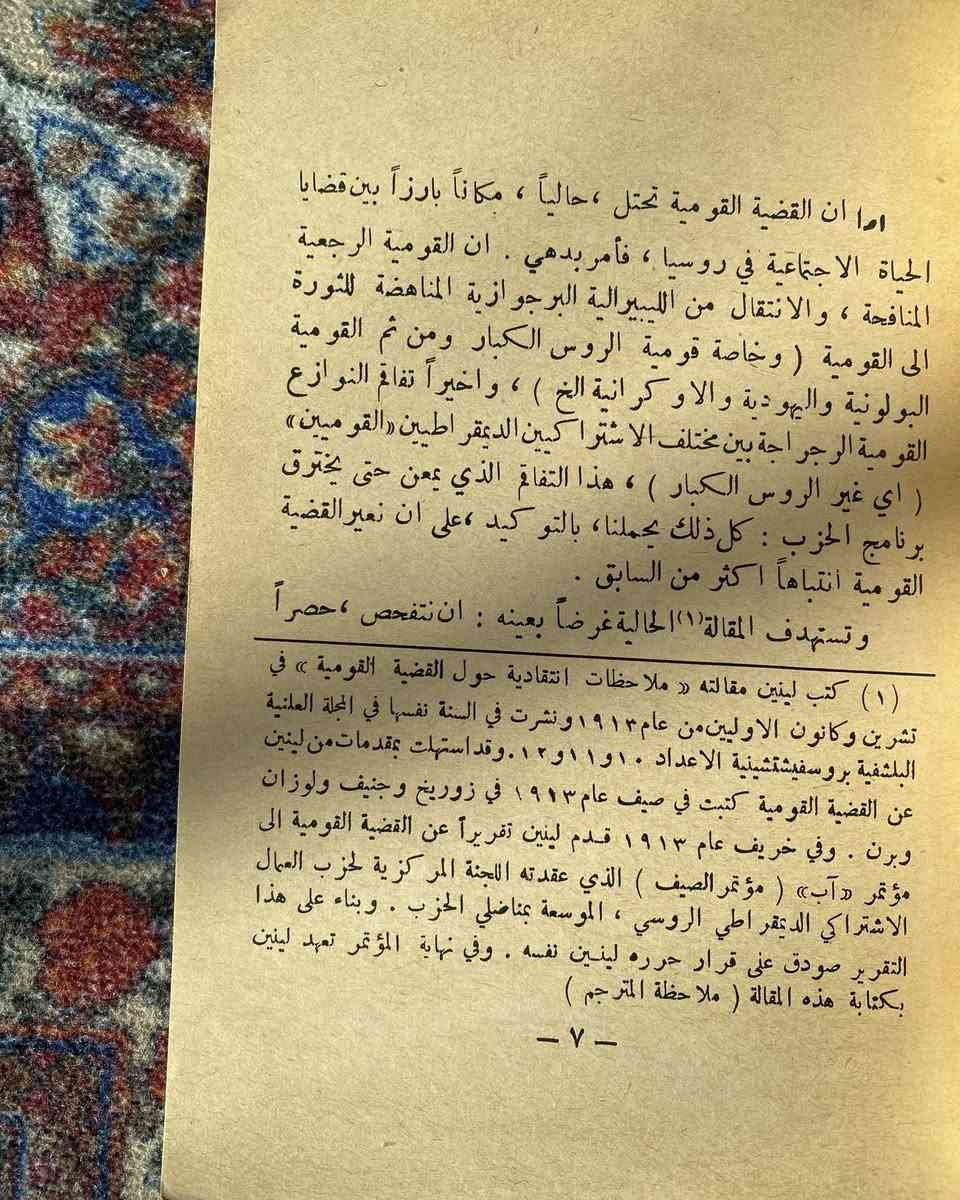 اما ان القضية القومية تحتل ، حالياً ، مكاناً بارزاً بين قضايا
الحياة الاجتماعية في روسيا ، فأمر بدهي . ان القومية الرجعية
المنافحة ، والانتقال من الليبيرالية البرجوازية المناهضة للثورة
الى القومية ( وخاصة قومية الروس الكبار ومن ثم القومية
البولونية واليهودية والاوكرانية الخ ) ، واخيراً تفاقم النوازع
القومية الرجراجة بين مختلف الاشتراكيين الديمقراطيين «القوميين»
( اي غير الروس الكبار ) ، هذا التفاقم الذي يمعن حتى يخترق
برنامج الحزب : كل ذلك يحملنا ، بالتوكيد ، على ان نعير القضية
القومية انتباهاً اكثر من السابق .
وتستهدف المقالة (١) الحالية غرضاً بعينه : ان نتفحص ، حصراً
(١) كتب لينين مقالته « ملاحظات انتقادية حول القضية القومية » في
تشرين وكانون الاوليين من عام ١٩١٣ ونشرت في السنة نفسها في المجلة العلنية
البلشفية بروسفيشتشينية الاعداد ١٠ و١١ و١٢. وقد استهلت بمقدمات من لينين
عن القضية القومية كتبت في صيف عام ١٩١٣ في زوريخ وجنيف ولوزان
وبرن . وفي خريف عام ١٩١٣ قدم لينين تقريراً عن القضية القومية الى
مؤتمر «آب» ( مؤتمر الصيف ) الذي عقدته اللجنة المركزية لحزب العمال
الاشتراكي الديمقراطي الروسي ، الموسعة بمناضلي الحزب . وبناء على هذا
التقرير صودق على قرار حرره لينين نفسه . وفي نهاية المؤتمر تعهد لينين
بكتابة هذه المقالة ( ملاحظة المترجم )
— ٧ —